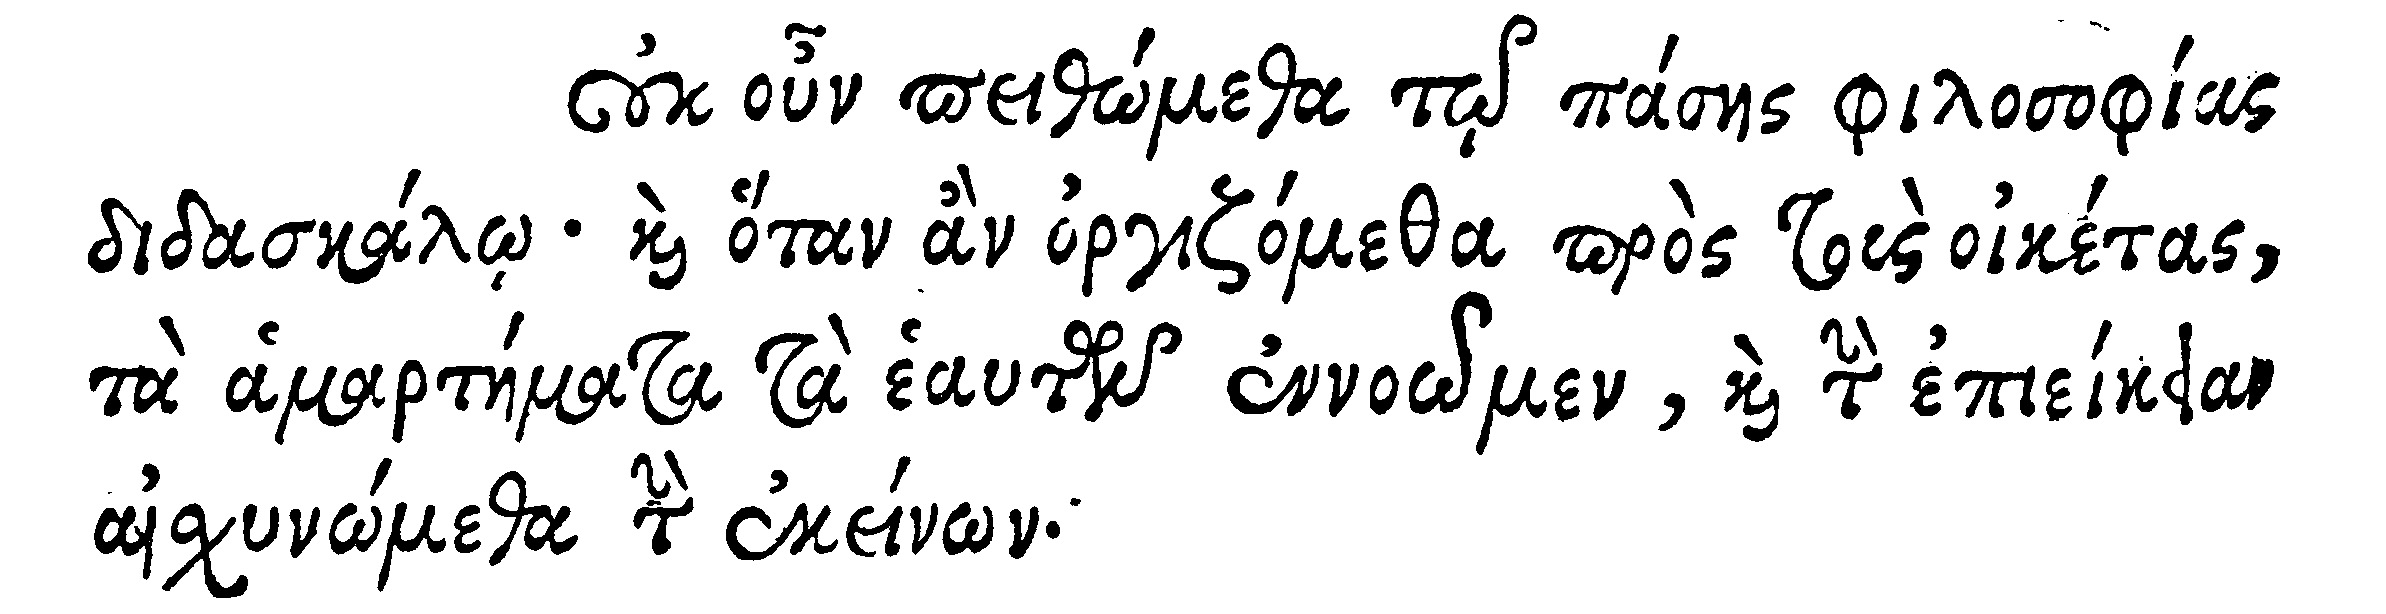 οὐκ οὖν πειθώμεθα τῷ πάσης φιλοσοφίας
διδασκάλῳ· καὶ ὅταν ἂν ὀργιζόμεθα πρὸς τοὺς οἰκέτας,
τὰ ἁμαρτήματα τὰ ἑαυτῶν ἐννοῶμεν, καὶ τὴν ἐπιείκειαν
αἰσχυνώμεθα τὴν ἐκείνων.